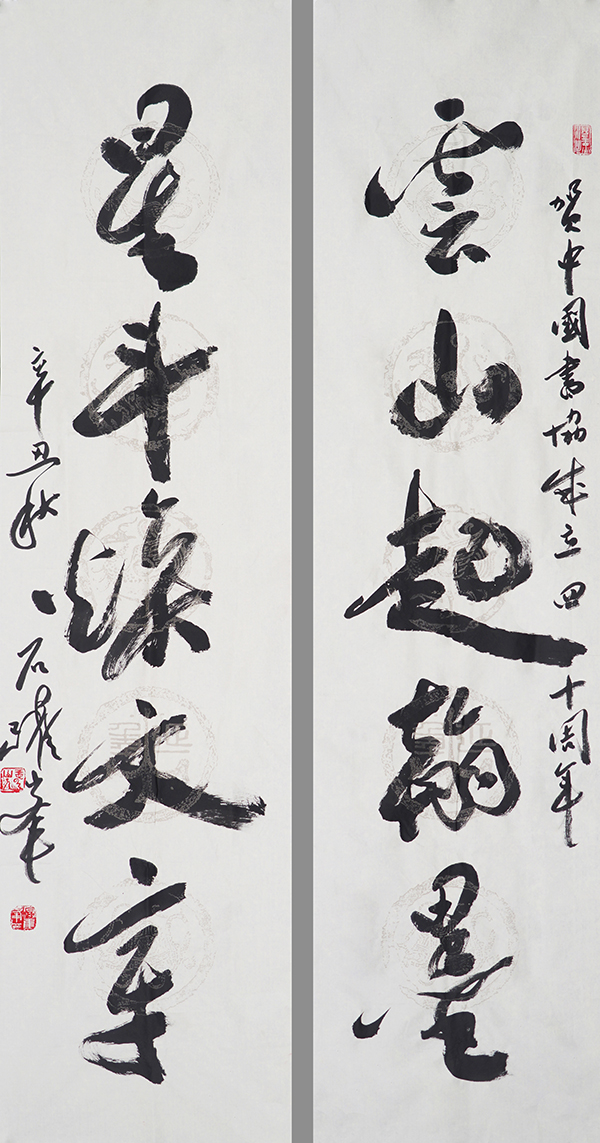 贺中國書協成立四十周年
雲山起翰墨
星斗燦文章
辛丑秋
石躍峰